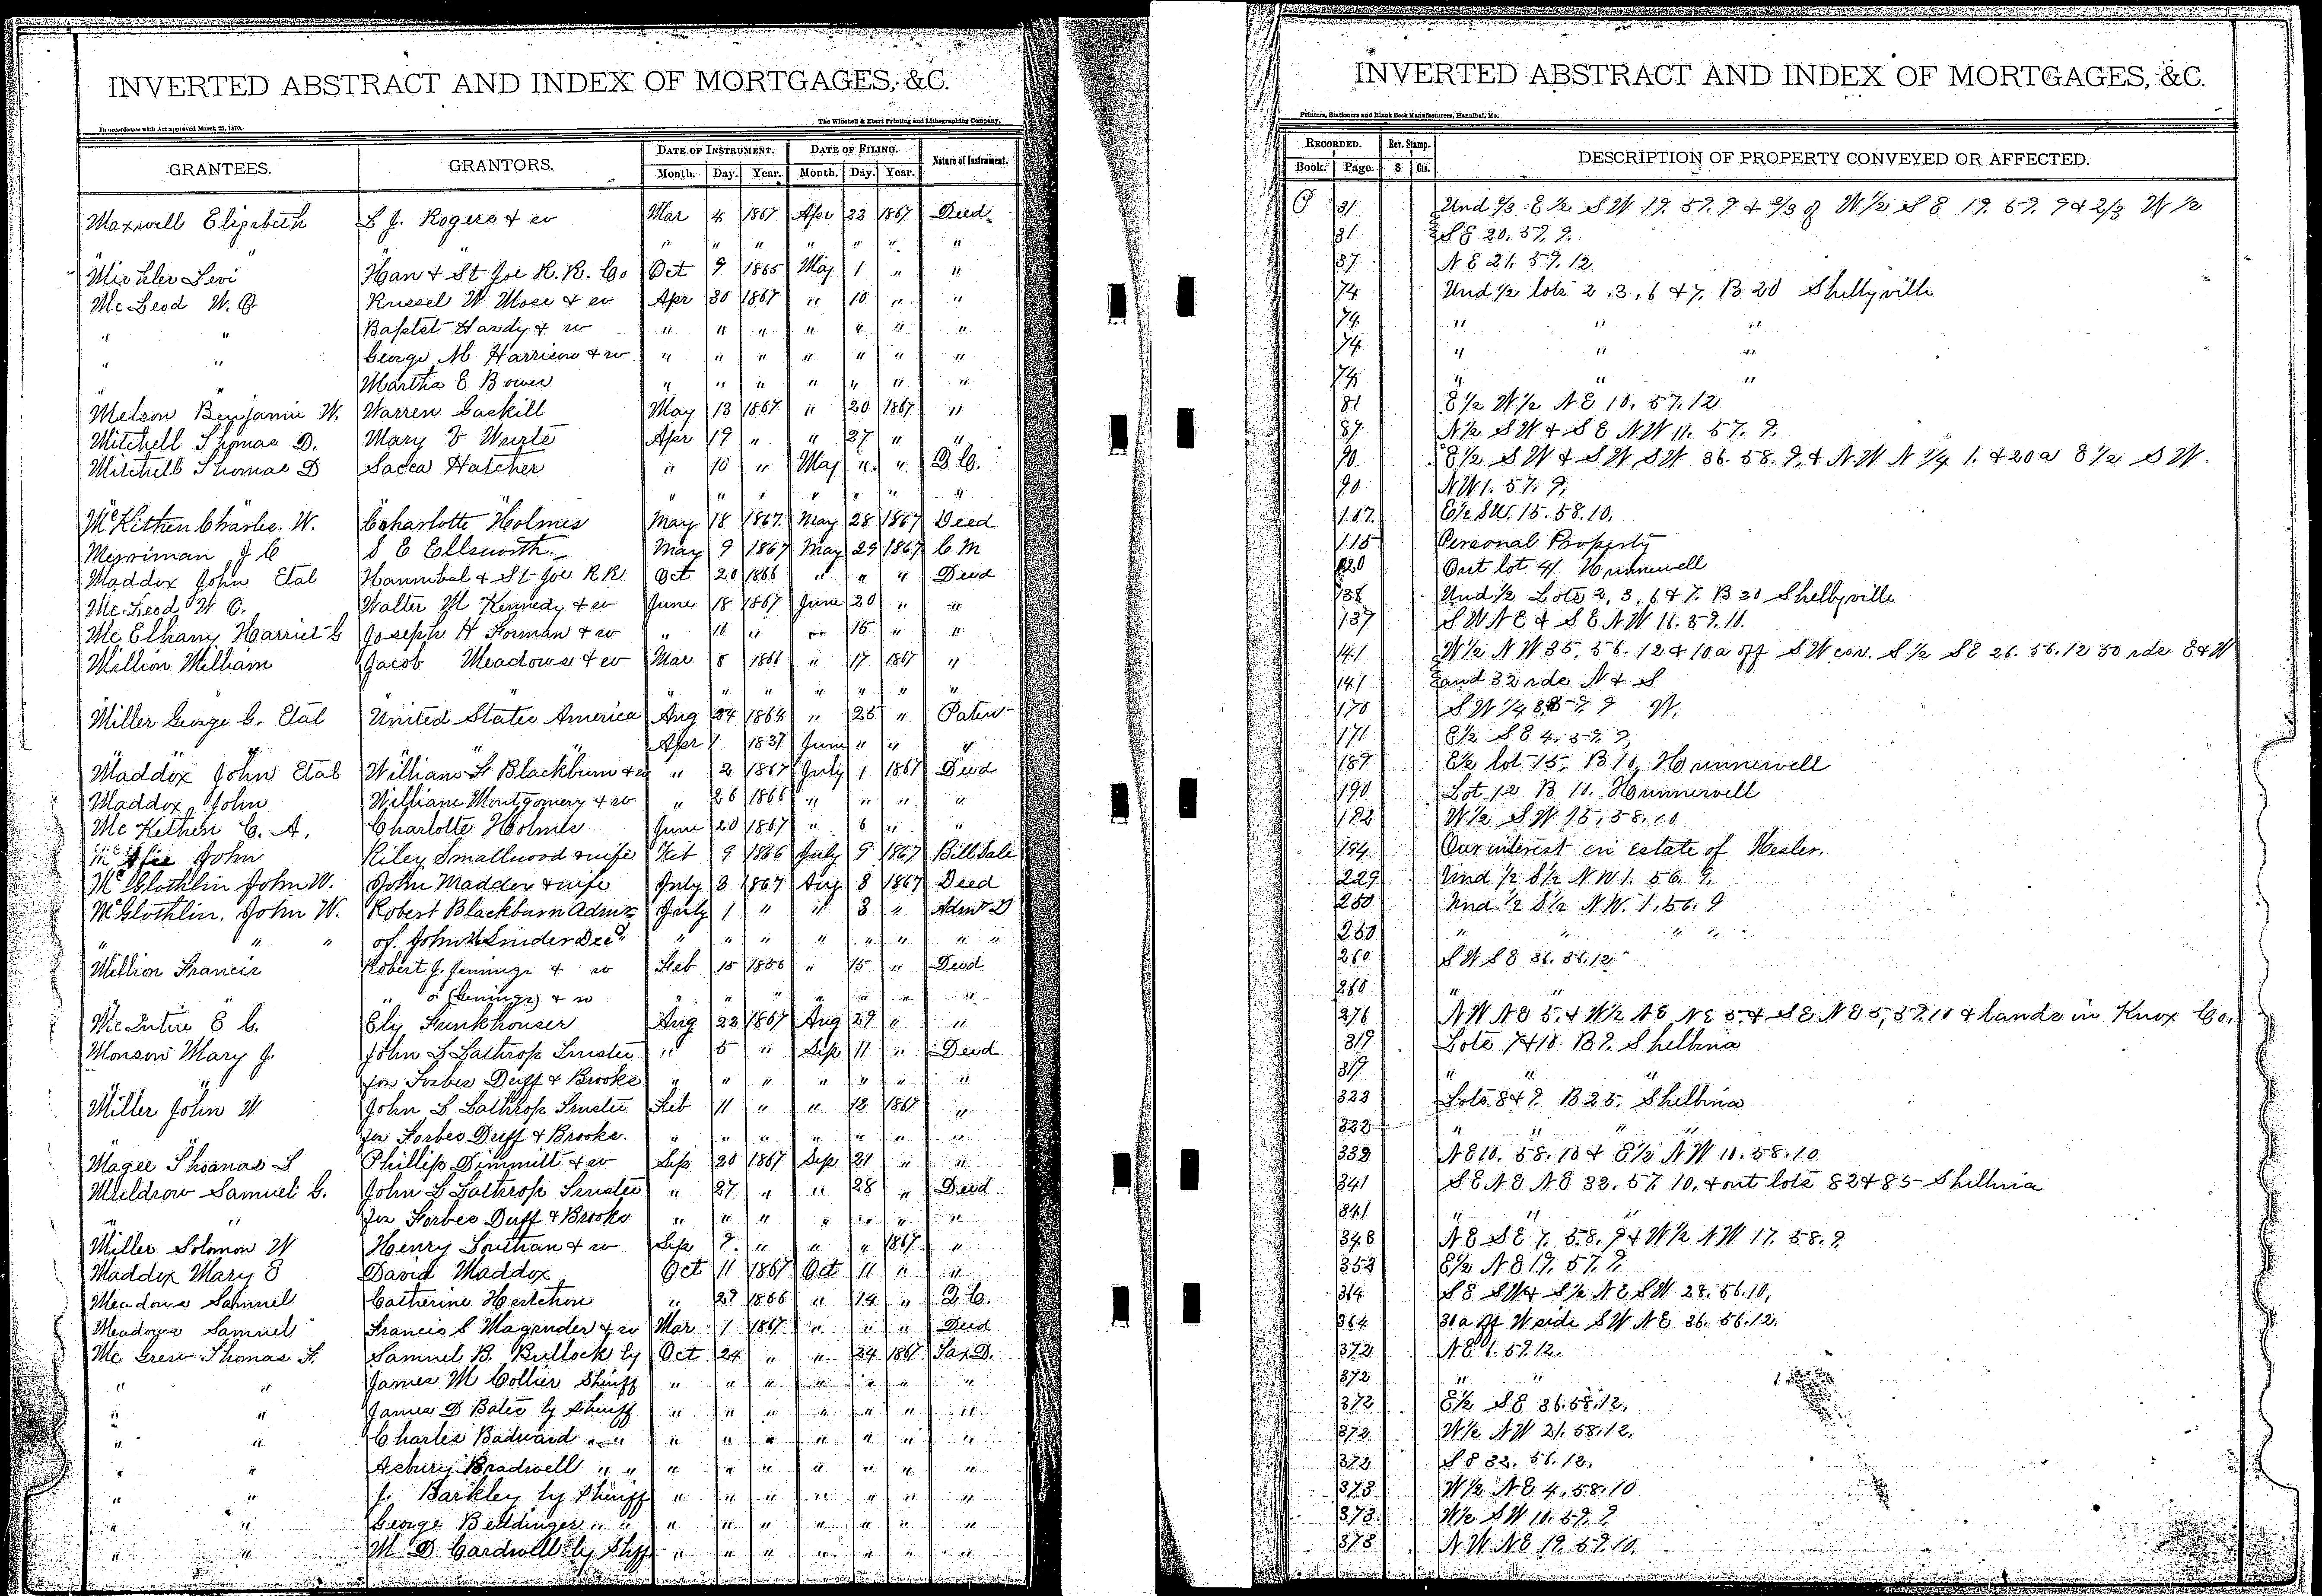 INVERTED ABSTRACT AND INDEX OF MORTGAGES, &C.
In accordance with Act approved March 25, 1870.
The Winchell & Ebert Printing and Lithographing Company,
GRANTEES. GRANTORS. DATE OF INSTRUMENT. DATE OF FILING. Nature of Instrument.
Month. Day. Year. Month. Day. Year.
Maxwell Elizabeth L J. Rogers & w Mar 4 1867 Apr 23 1867 Deed
" " " " " " " " "
Levi Han & St Joe R.R. Co Oct 9 1865 May 1 " "
McLeod W. O Russel W Moss & w Apr 30 1867 " 10 " "
" " Baptst Hardy & w " " " " " " "
" " George M Harrison & w " " " " " " "
" " Martha E Bower " " " " " " "
Melson Benjamin W. Warren Gaskill May 13 1867 " 20 1867 "
Mitchell Thomas D. Mary Apr 19 " " 27 " "
Mitchell Thomas D Hatcher " 10 " May " " D C.
" " " " " " " " "
McKethen Charles. W. Charlotte Holmes May 18 1867 May 28 1867 Deed
Merriman J C S E Ellsworth. May 9 1867 May 29 1867 C M
Maddox John Etal Hannibal & St Joe RR Oct 20 1866 " " " Deed
McLeod W O. Walter M Kennedy & w June 18 1867 June 20 " "
Mc Elhany Harriet C Joseph H Forman & w " 10 " " 15 " "
Million William Jacob Meadows & w Mar 8 1866 " 17 1867 "
" " " " " " " "
Miller George C. Etal United States America Aug 24 1864 " 25 " Paten
" " Apr 1 1837 June " " "
Maddox John Etal William F Blackburn & w " 2 1867 July 1 1867 Deed
Maddox John William Montgomery & w " 26 1866 " " " "
Mc Kethen C. A. Charlotte Holmes June 20 1867 " 6 " "
McAfee John Riley Smallwood & wife Feb 9 1866 July 9 1867 Bill Sale
McGlothlin John W. John Maddox & wife July 3 1867 Aug 3 1867 Deed
McGlothlin. John W. Robert Blackburn Admr July 1 " " 3 " Admr D
" " " of. John W Linder Decd " " " " " " " "
Million Francis Robert J. Jennings & w Feb 15 1856 " 15 " Deed
" " or (Genings) & w " " " " " " "
McIntire E C. Ely Funkhouser Aug 22 1867 Aug 29 " "
Monson Mary J. John L Lathrop Trustee " 5 " Sep 11 " Deed
" " for Forbes Duff & Brooks " " " " " " "
Miller John W John L Lathrop Trustee Feb 11 " " 13 1867 "
for Forbes Duff & Brooks. " " " " " " "
Magee Thomas L Phillip Dimmitt & w Sep 20 1867 Sep 21 " "
Muldrow Samuel C. John L Lathrop Trustee " 27 " " 28 " Deed
" " for Forbes Duff & Brooks " " " " " " "
Miller Solomon W Henry Louthan & w Sep 7. " " " 1867 "
Maddox Mary E David Maddox Oct 11 1867 Oct 11 " "
Meadows Samuel Catherine " 29 1866 " 14 " D C.
Meadows Samuel Francis S Magruder & w Mar 1 1867 " " " Deed
Mc Thomas F. Samuel B. Bullock by Oct 24 " " 24 1867 Tax D.
" " James M Collier Sheriff " " " " " " "
" " James D Bates by Sheriff " " " " " " "
" " Charles " " " " " " " " "
" " Asbury Bradwell " " " " " " " " "
" " J. Barkley by Sheriff " " " " " " "
" " George Beddinger " " " " " " " " "
" " M D Cardwell by Shff " " " " " " "
INVERTED ABSTRACT AND INDEX OF MORTGAGES, &C.
Printers, Stationers and Blank Book Manufacturers, Hannibal, Mo.
RECORDED. Rev. Stamp. DESCRIPTION OF PROPERTY CONVEYED OR AFFECTED.
Book. Page. $ Cts.
31 Und 2/3 E ½ SW 19. 57. 9 & 2/3 of W ½ S E 19. 57. 9 & 2/3 W ½
31 S E 20. 57. 9.
37 N E 21. 57. 12
74 Und ½ lots 2, 3, 6 & 7. B 20 Shelbyville
74 " " "
74 " " "
74 " " "
81 E ½ W ½ N E 10. 57. 12
87 N ½ S W & S E N W 11. 57. 9.
90 E ½ S W & S W S W 36. 58. 9, & N.W N ¼ 1. & 20 a E ½ S W.
90 N W 1. 57. 9.
107. E ½ S W. 15. 58. 10.
115 Personal Property
120 Out lot 41 Hunnewell
138 Und ½ Lots 2, 3, 6 & 7. B 20 Shelbyville
137 S W N E & S E N W 11. 57. 11.
141 W ½ N W 35. 56. 12 & 10 a off S W cor. S ½ S E 26. 56. 12 50 rds E & W
141 and 32 rds N & S
170 S W ¼
171 E ½ S E 4. 57. 9,
189 E ½ lot 15. B 10, Hunnewell
190 Lot 12 B 11. Hunnewell
192 W ½ S W 15, 58. 10
194 Our interest in estate of Hesler.
229 Und ½ S ½ N W 1. 56. 9.
250 Und ½ S ½ N.W. 1. 56. 9
250 " " " "
260 S W S E 36. 56. 12
260 " "
276 N W N E 5. & W ½ N E N E 5. & S E N E 5, 57. 10 & lands in Knox Co.
319 Lots 7 & 10. B 9. Shelbina
319 " " "
323 Lots 8 & 9. B 25. Shelbina
323 " " " "
339 N E 10. 58. 10 & E ½ N W 10. 58. 10
341 S E N E N E 32. 57. 10. & out lots 82 & 85 Shelbina
341 " " "
348 N E S E 7. 58. 9 & W ½ N W 17. 58. 9.
353 E ½ N E 19. 57. 9.
364 S E S W & S ½ N E S W 28. 56. 10,
364 30 a off W side S W N E 36. 56. 12.
372 N E 1. 57. 12.
372 " "
372 E ½ S E 36. 58. 12.
372 W ½ N W 21. 58. 12.
372 S E 32. 56. 12.
373 W ½ N E 4, 58. 10
373 W ½ S W 10. 57. 9
373 N W N E 19. 57. 10.